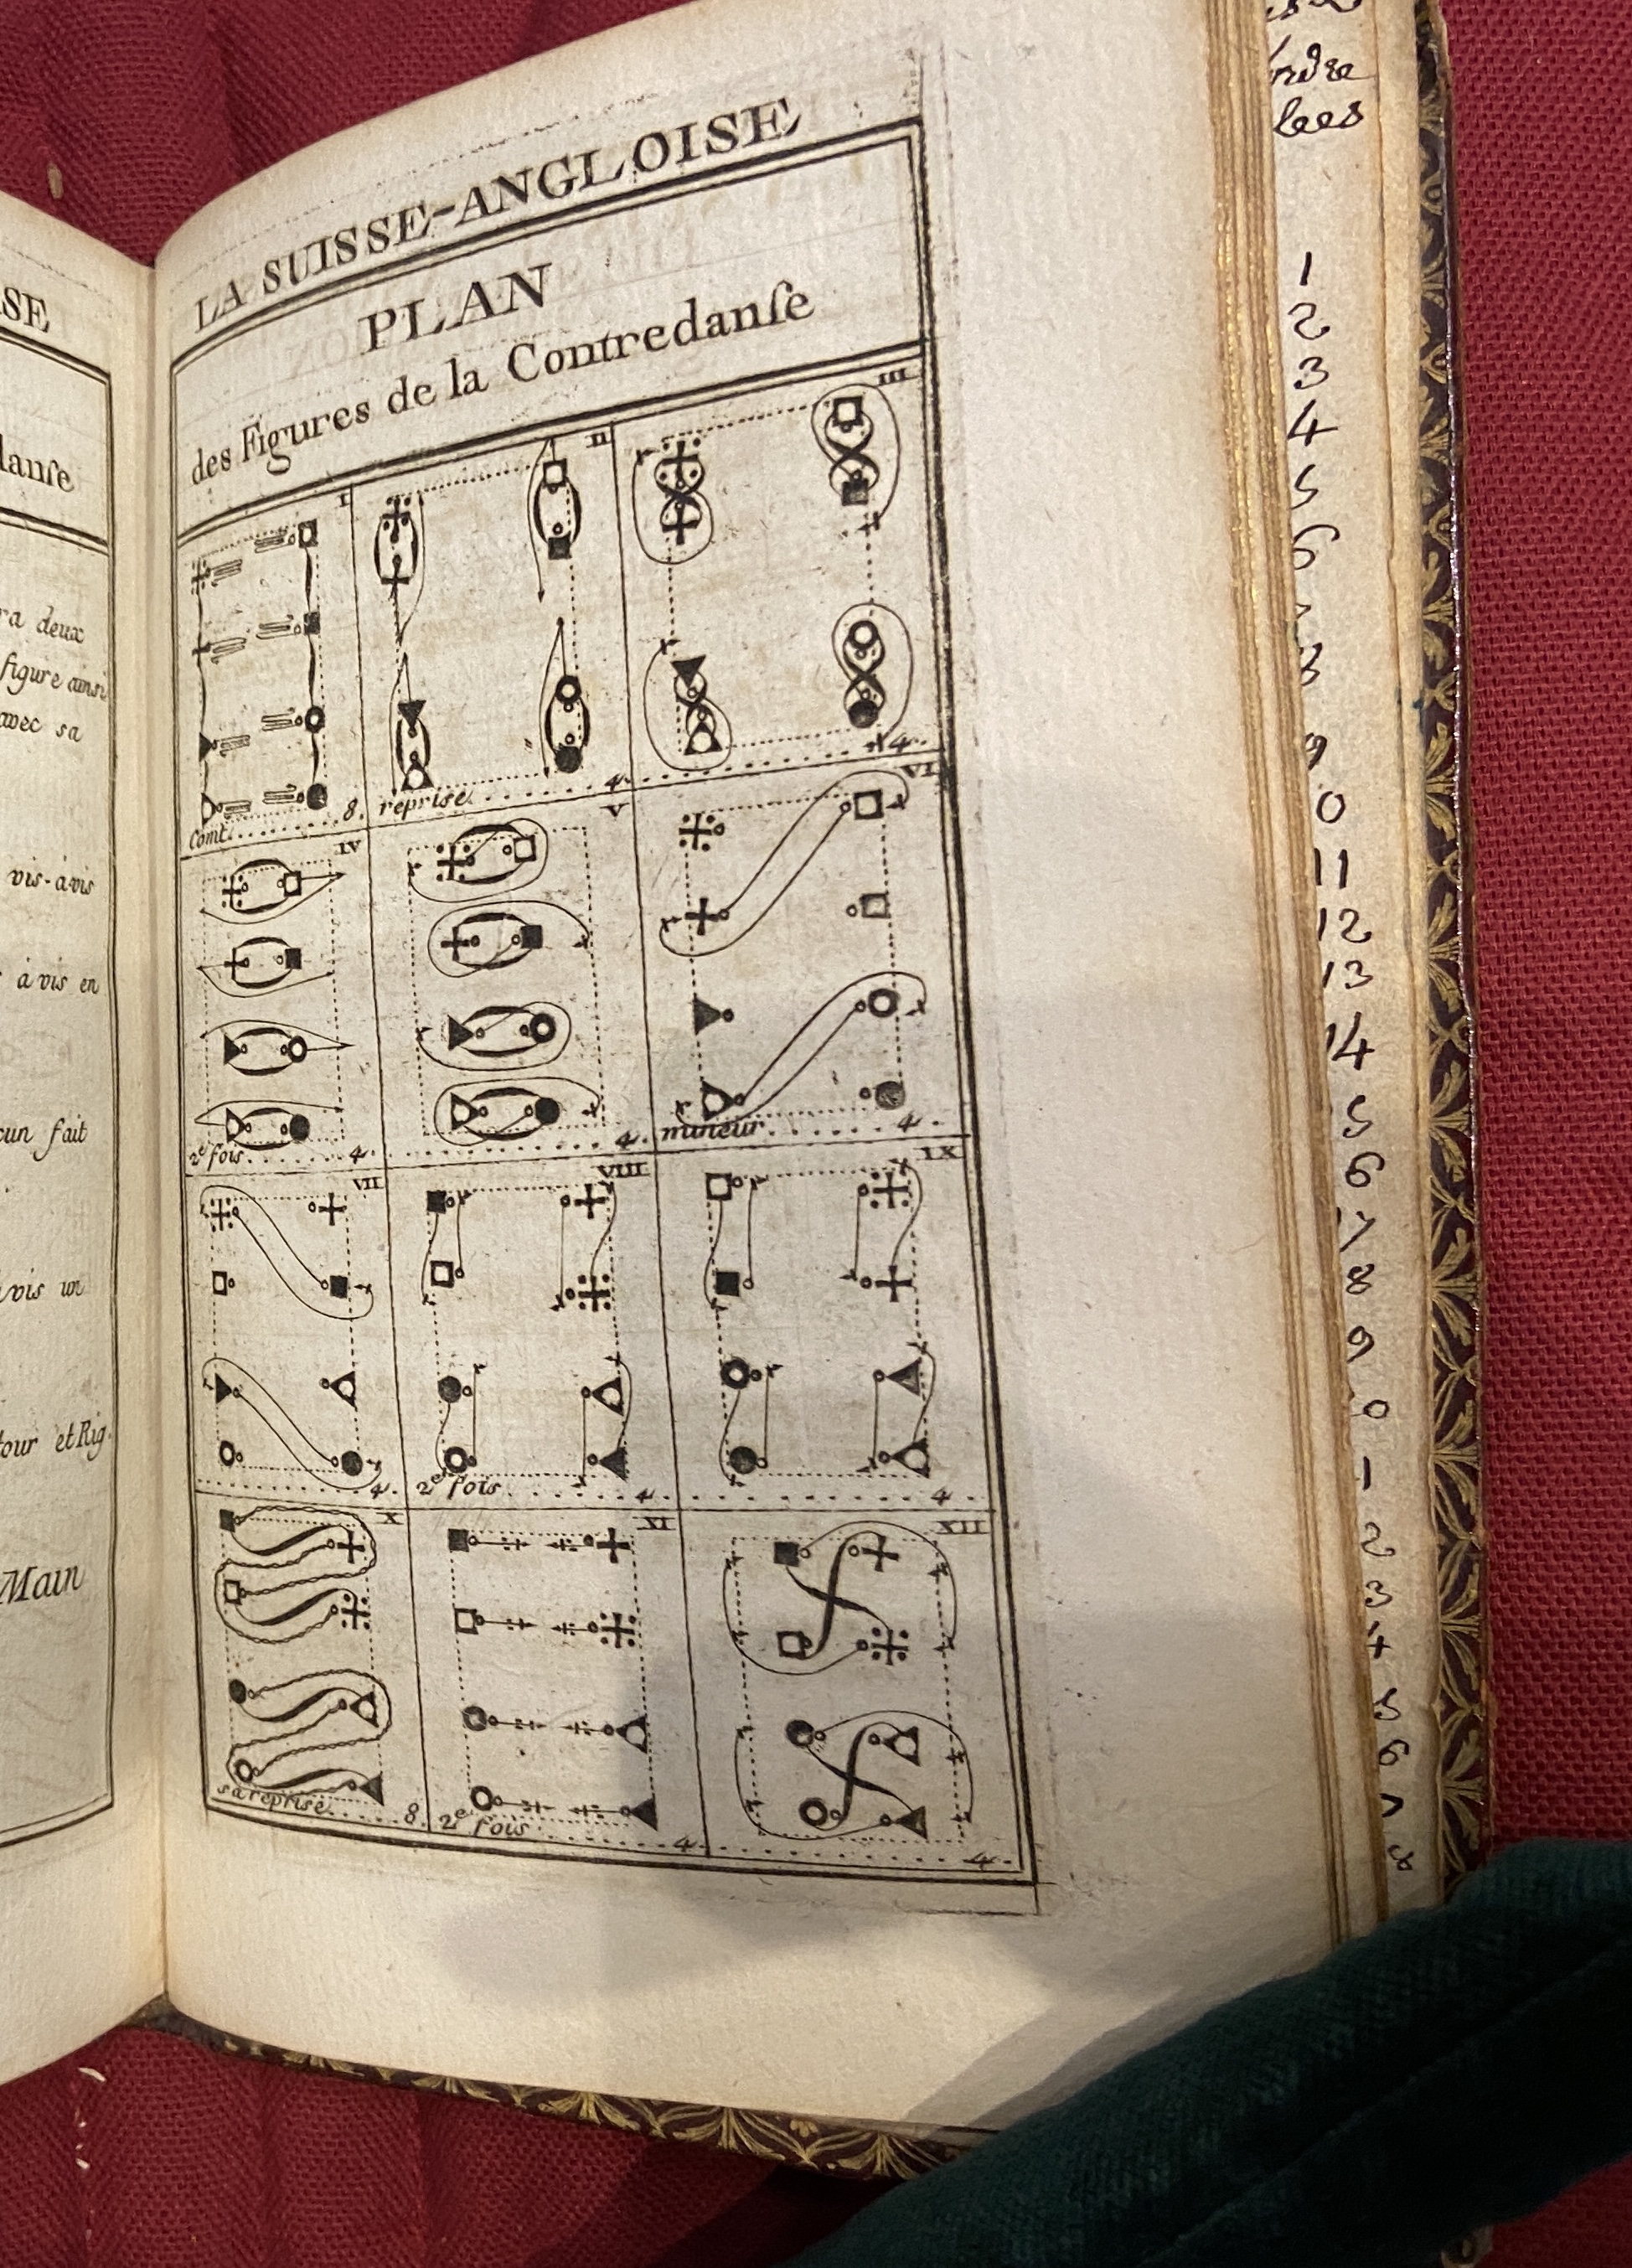 SE
danſe
deux
figure ainsi
avec sa
vis-à vis
à vis en
fait
vis un
tour et Rig.
Main
LA SUISSE-ANGLOISE
PLAN
des Figures de la Contredanſe
I
Com.t 8.
II
reprise 4.
III
4.
IV
2.e fois 4.
V
4.
VI
mineur 4.
VII
4.
VIII
2.e fois 4.
IX
4.
X
sa reprise 8.
XI
2.e fois 4.
XII
4.
lees
1
2
3
4
5
6
8
9
0
11
12
13
14
5
6
17
8
9
0
1
2
3
4
5
6
7
8